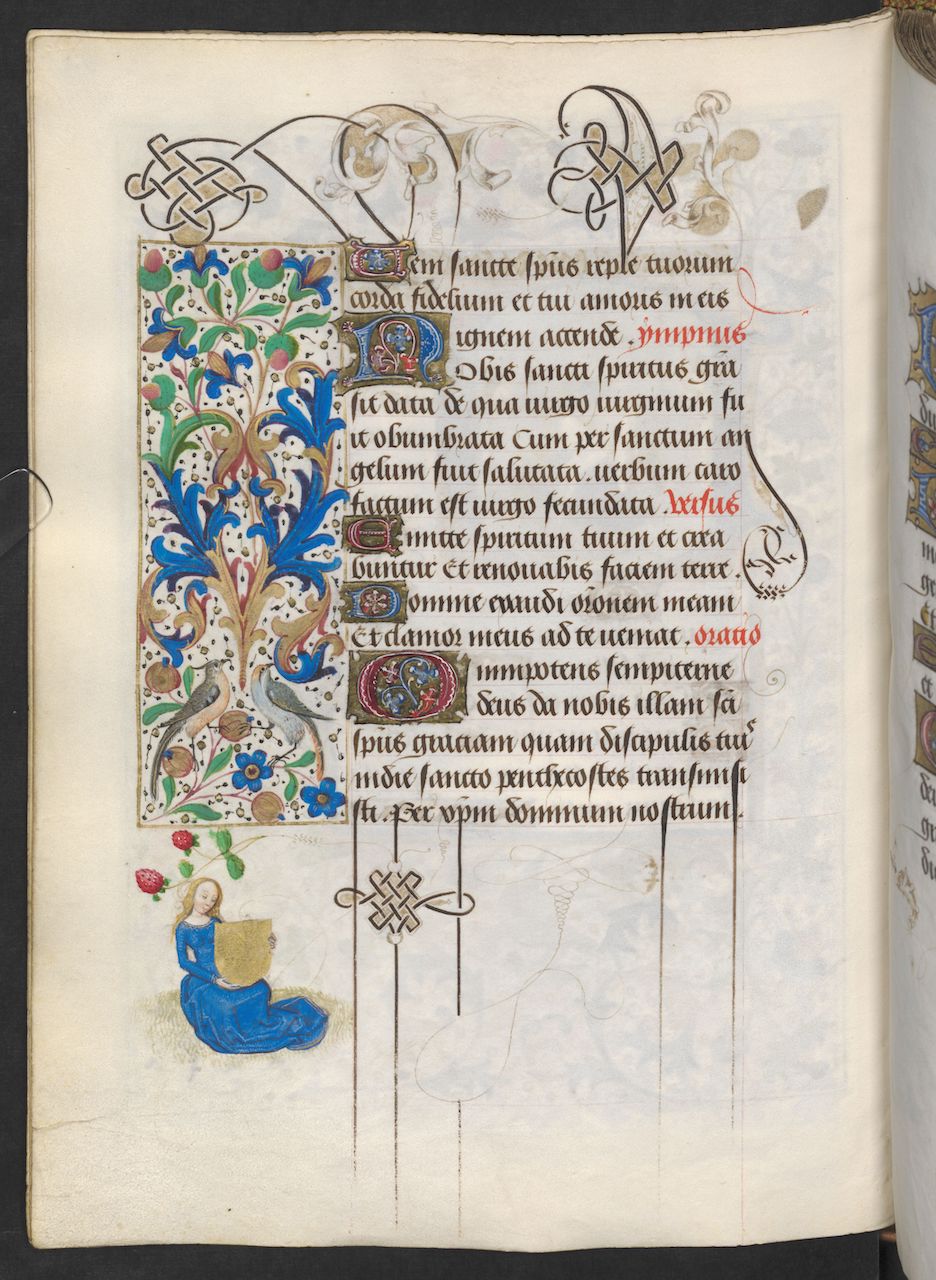 Ueni sancte spūs reple tuorum
corda fidelium et tui amoris in eis
ignem accende . ympnus
Nobis sancti spiritus grā
sit data de qua uirgo uirginum fu
it obumbrata Cum per sanctum an
gelum fuit salutata . uerbum caro
factum est uirgo fecundata . versus
Emitte spiritum tuum et crea
buntur Et renouabis faciem terre .
Domine exaudi orōnem meam
Et clamor meus ad te ueniat . oratio
Omnipotens sempiterne
deus da nobis illam sci
spūs graciam quam discipulis tuis
in die sancto penthecostes transmisi
sti . Per xpm dominum nostrum .